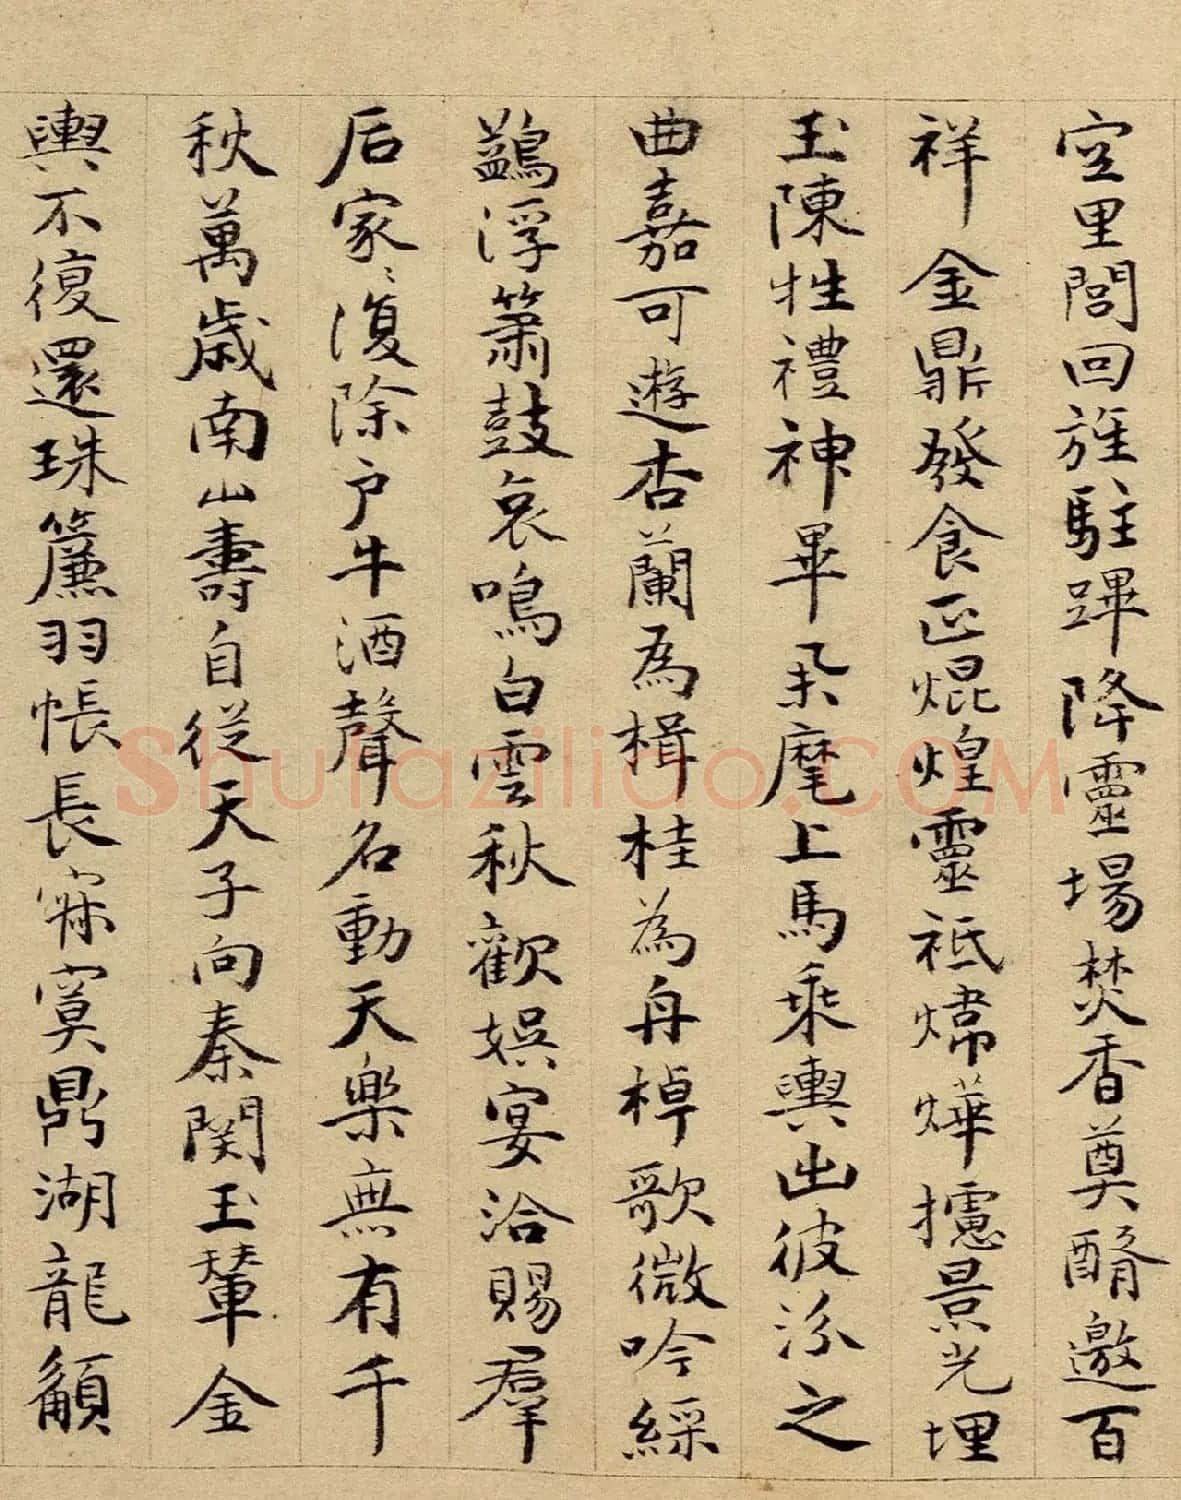 空里閭回旌駐蹕降靈場焚香奠醑邀百
祥金鼎發食正焜煌靈祇煒燁攄景光埋
玉陳牲禮神畢麾上馬乘輿出彼汾之
曲嘉可遊杏蘭為楫桂為舟棹歌微吟綵
鷁浮簫鼓哀鳴白雲秋歡娛宴洽賜羣
后家〻復除户牛酒聲名動天樂無有千
秋萬歲南山壽自從天子向秦関玉輦金
輿不復還珠簾羽帳長寂寞鼎湖龍
Shufaziliao.COM